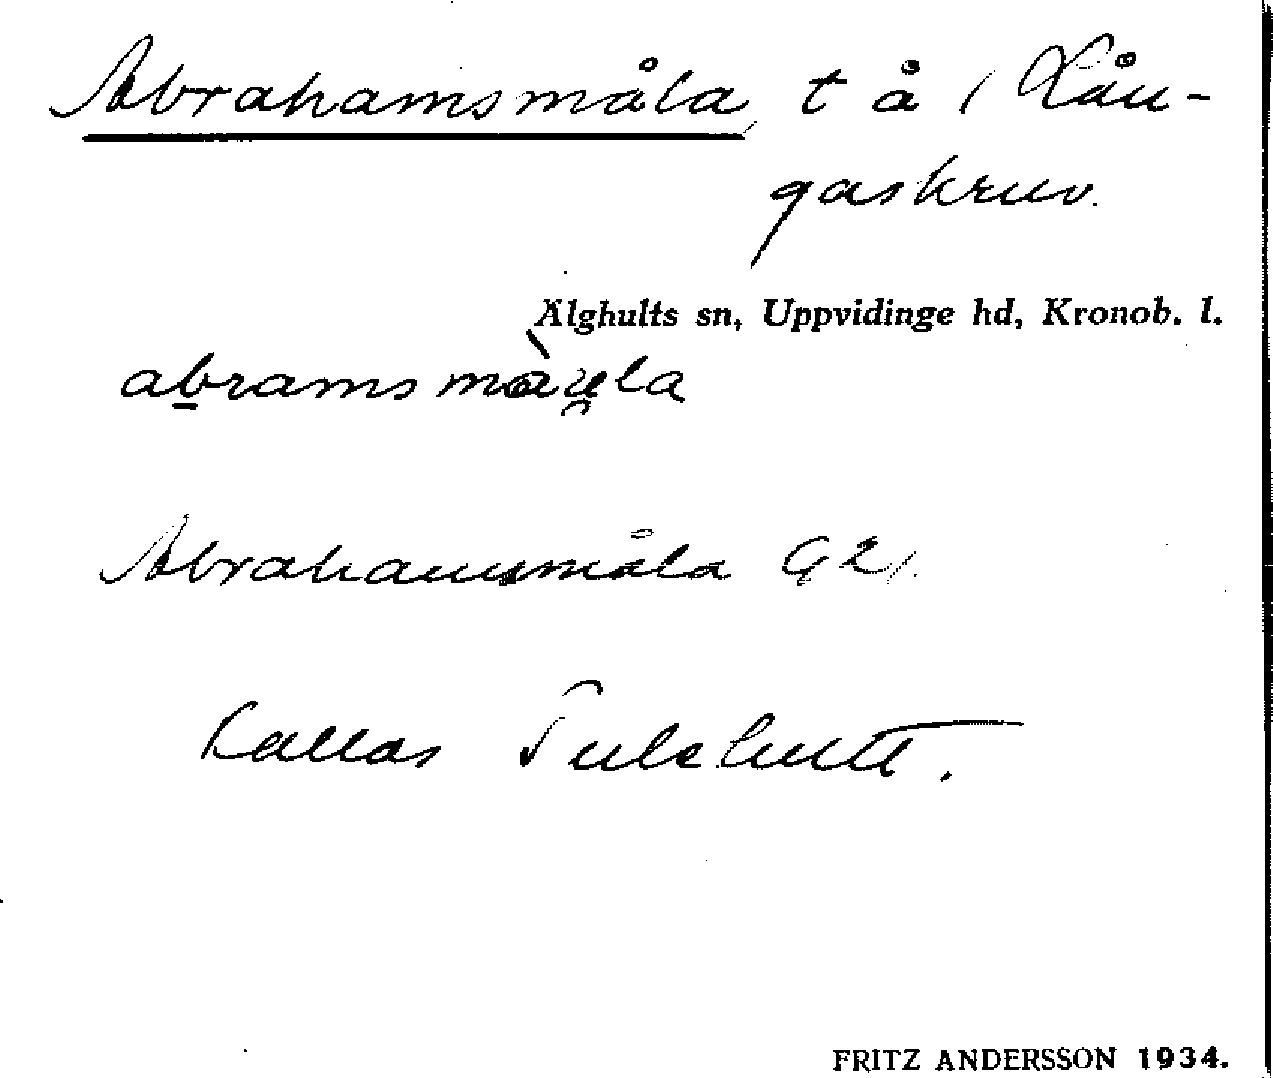 Abrahamsmåla, t å i Lån-
gaskruv.
Älghults sn, Uppvidinge hd, Kronob. l.
abramsmàu̯la
Abrahamsmåla G 21.
Kallas
FRITZ ANDERSSON 1934.